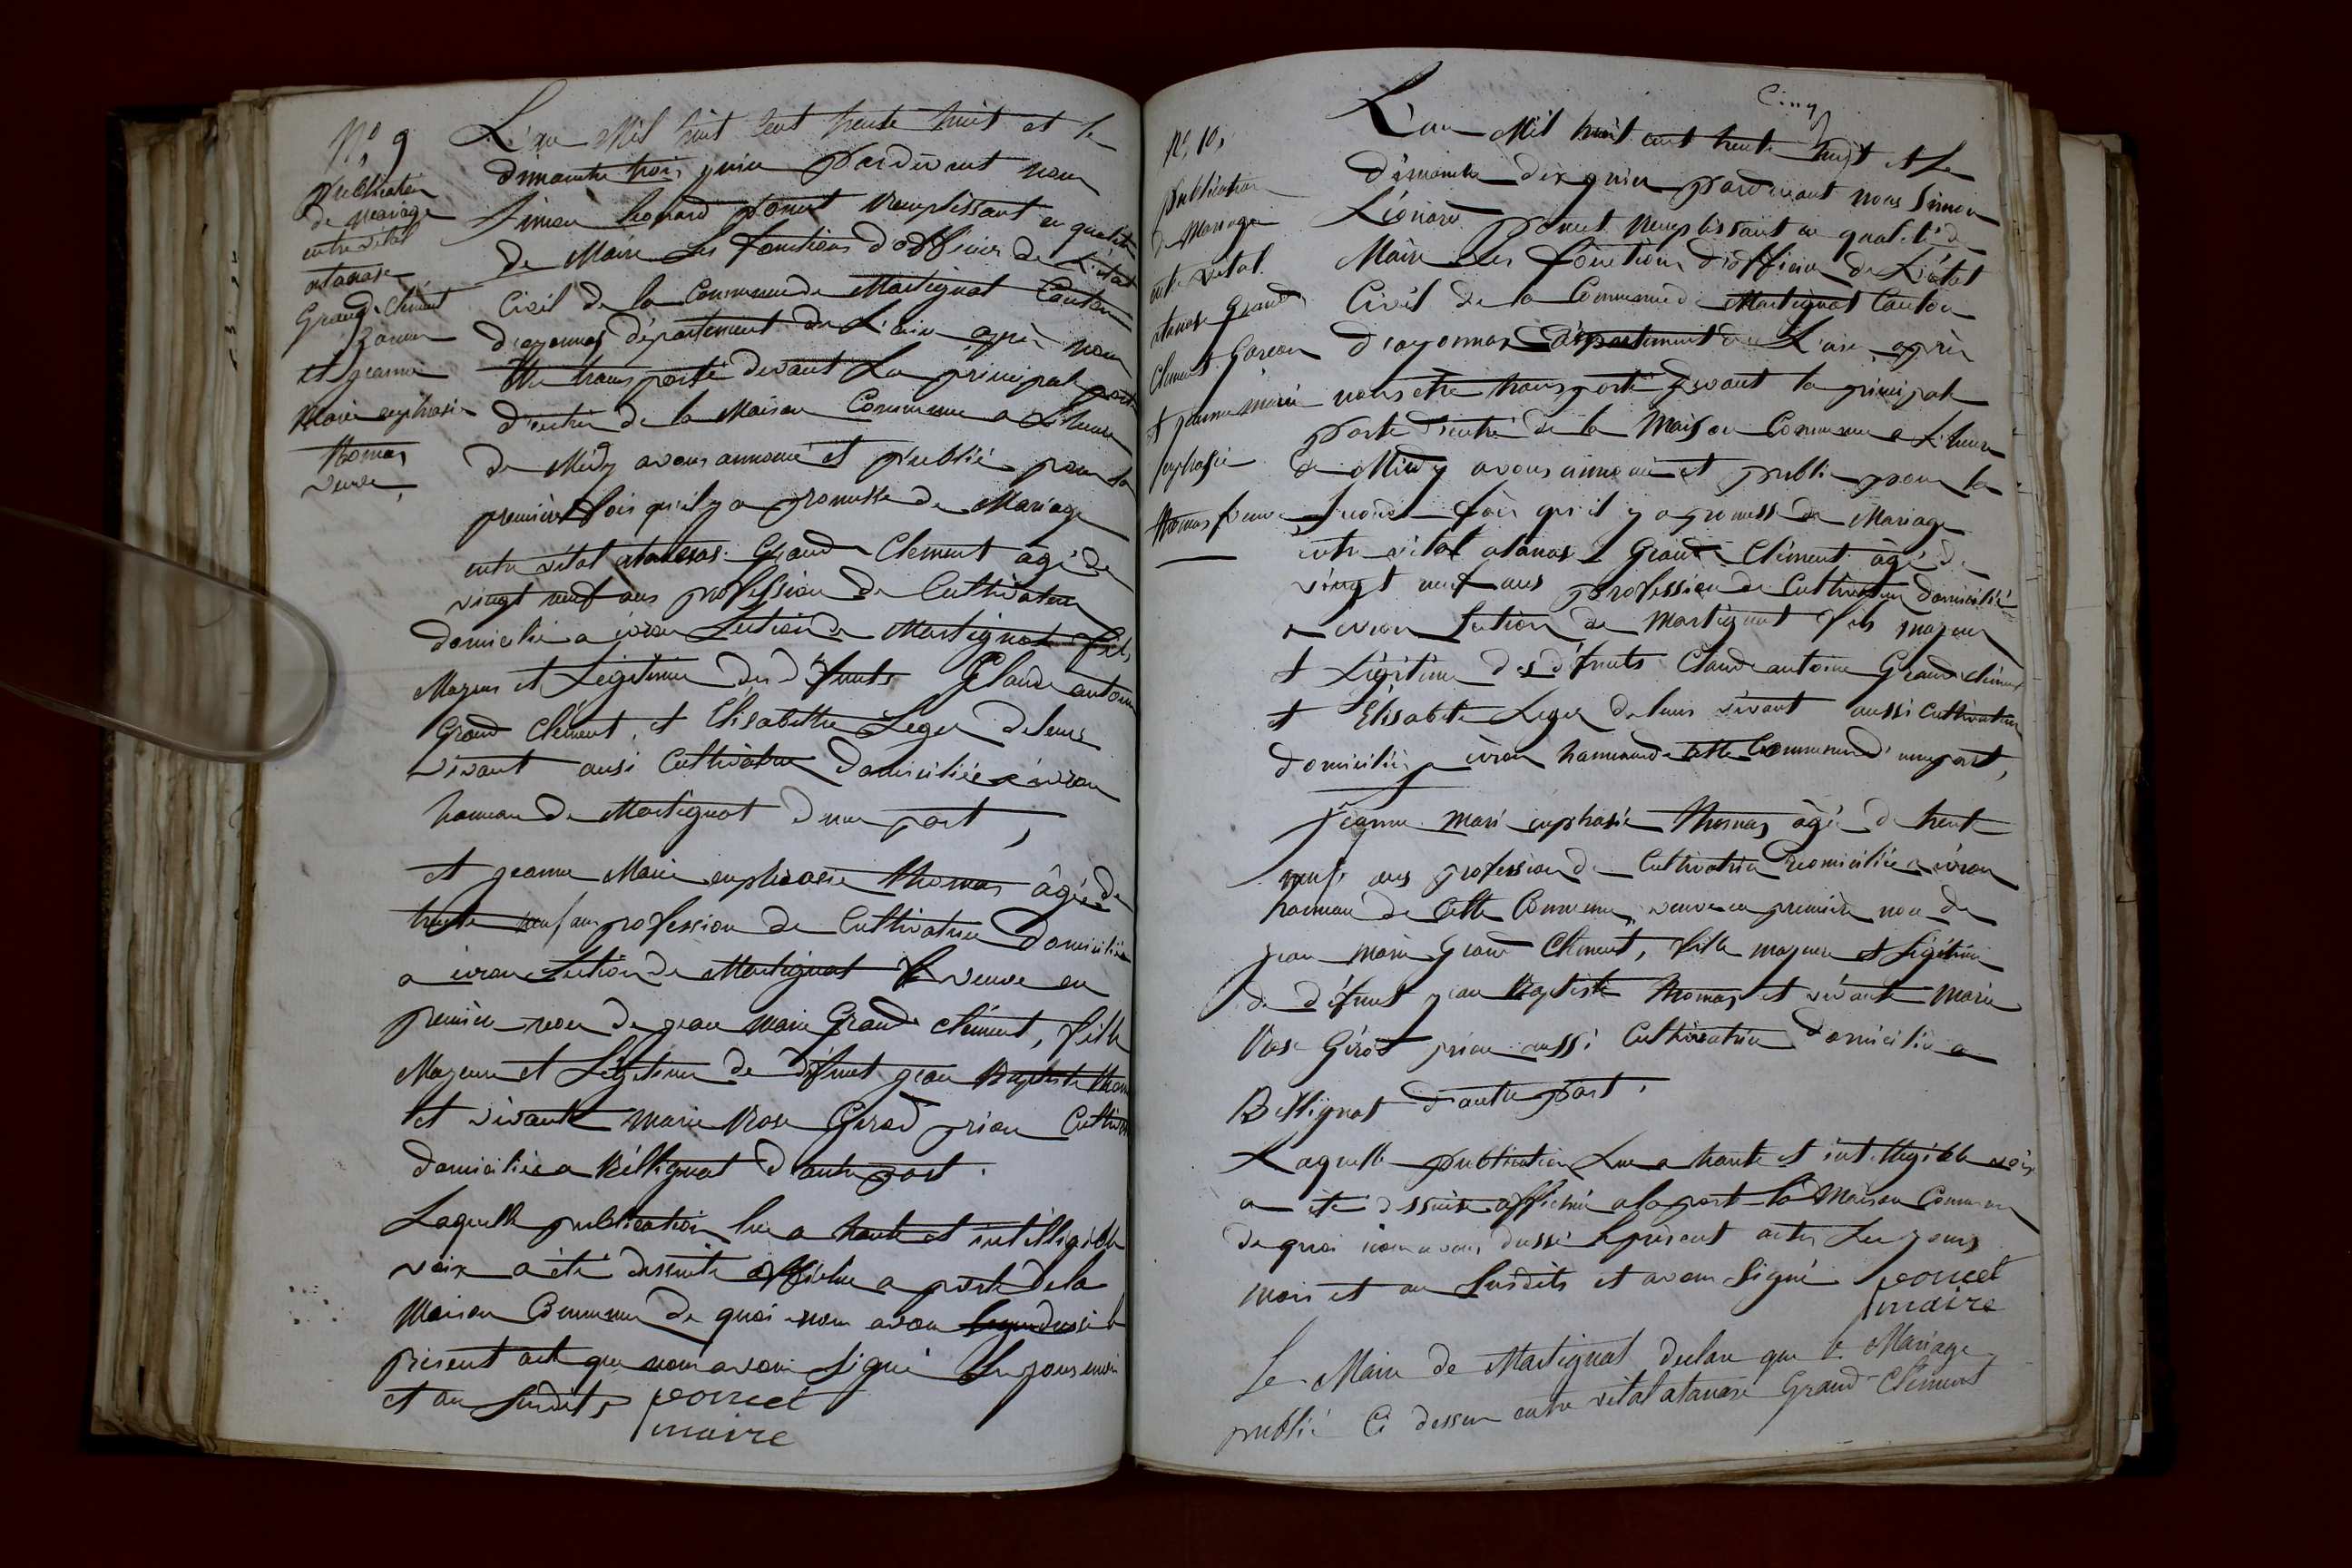 N° 9
publication
de mariage
entre vital
atanase
Grand-Clément
Garson
et jeanne
Marie euphrasie
thomas
veuve
L'an Mil huit Cent trente huit et le
dimanche trois juin pardevant nous
Simon Leonard poncet Remplissant en qualité
de Maire les fonctions d'officier de L'état
Civil de la Commune de Martignat Canton
d'oyonnax département de L'ain après nous
être transporté devant La principale porte
d'entrée de la Maison Commune a L'heure
de Midy avons annoncé et publié pour la
première fois qu'il y a promesse de Mariage
entre vital atanase Grand Clement agé de
vingt neuf ans profession de Cultivateur
domicilié a évron Section de Martignat fils
Majeur et Legitime des défunts Claude antoine
Grand Clément, et Elisabethe Leger de leurs
vivant ausi Cultivateur domiciliés a évron
hameau de Martignat d'une part,
et jeanne Marie euphrasie thomas âgée de
trente neuf ans profession de Cultivatrice domiciliée
a évron Section de Martignat veuve en
premier noce de jean marie Grand clément, fille
Majeure et Légitime de défunt jean Baptiste thomas
et vivante marie Rose Girod prion Cultiv
domiciliée a Béllignat d'autre part.
Laquelle publication lue a haute et intélligible
voix a été dessuite affiche a porte de la
Maison Commune de quoi nous avons
présent acte que nous avons signé les jours mois
et an susdits poncet
maire
N° 10,
publication
de Mariage
entre vital
atanase Grand
Clement Garson
et jeanne marie
euphrasie
thomas veuve
Cinq
L'an Mil huit cent trente huit et le
dimanche dix juin pardevant nous Simon
Léonard poncet Remplissant en qualité de
Maire les fonctions d'officier de L'état
Civil de la Commune de Martignat Canton
d'oyonnax département de L'ain, après
nous être transporté devant la principale
porte d'entré de la Maison Commune a L'heure
de Midy avons annoncé et publié pour la
seconde fois qu'il y a promesse de Mariage
entre vital atanase Grand-Clément âgé de
vingt neuf ans profession de Cultivateur domicilié
a evron Section de Martignat fils majeur
et Légitime des défunts Claude antoine Grand clément
et Elisabete Leger de leurs vivant aussi cultivateur
domiciliés a évron hameau de cette Commune d'une part,
Jeanne marie euphrasie thomas âgée de trente
neuf ans profession de Cultivatrice domiciliée a évron
hameau de Cette Commune, veuve en première noce de
jean marie Grand Clément, fille majeure et Légitime
de défunt jean Baptiste thomas et vivante marie
Rose Girod prion aussi Cultivatrice domiciliée a
Béllignat d'autre part.
Laquelle publication Lue a haute et intélligible voix
a été dessuite affiché a la porte la Maison Commune
de quoi nous avons dressé le présent acte, les jours
mois et an susdits et avons signé poncet
maire
Le Maire de Martignat declare que le Mariage
publié Ci dessus entre vital atanase Grand-Clément